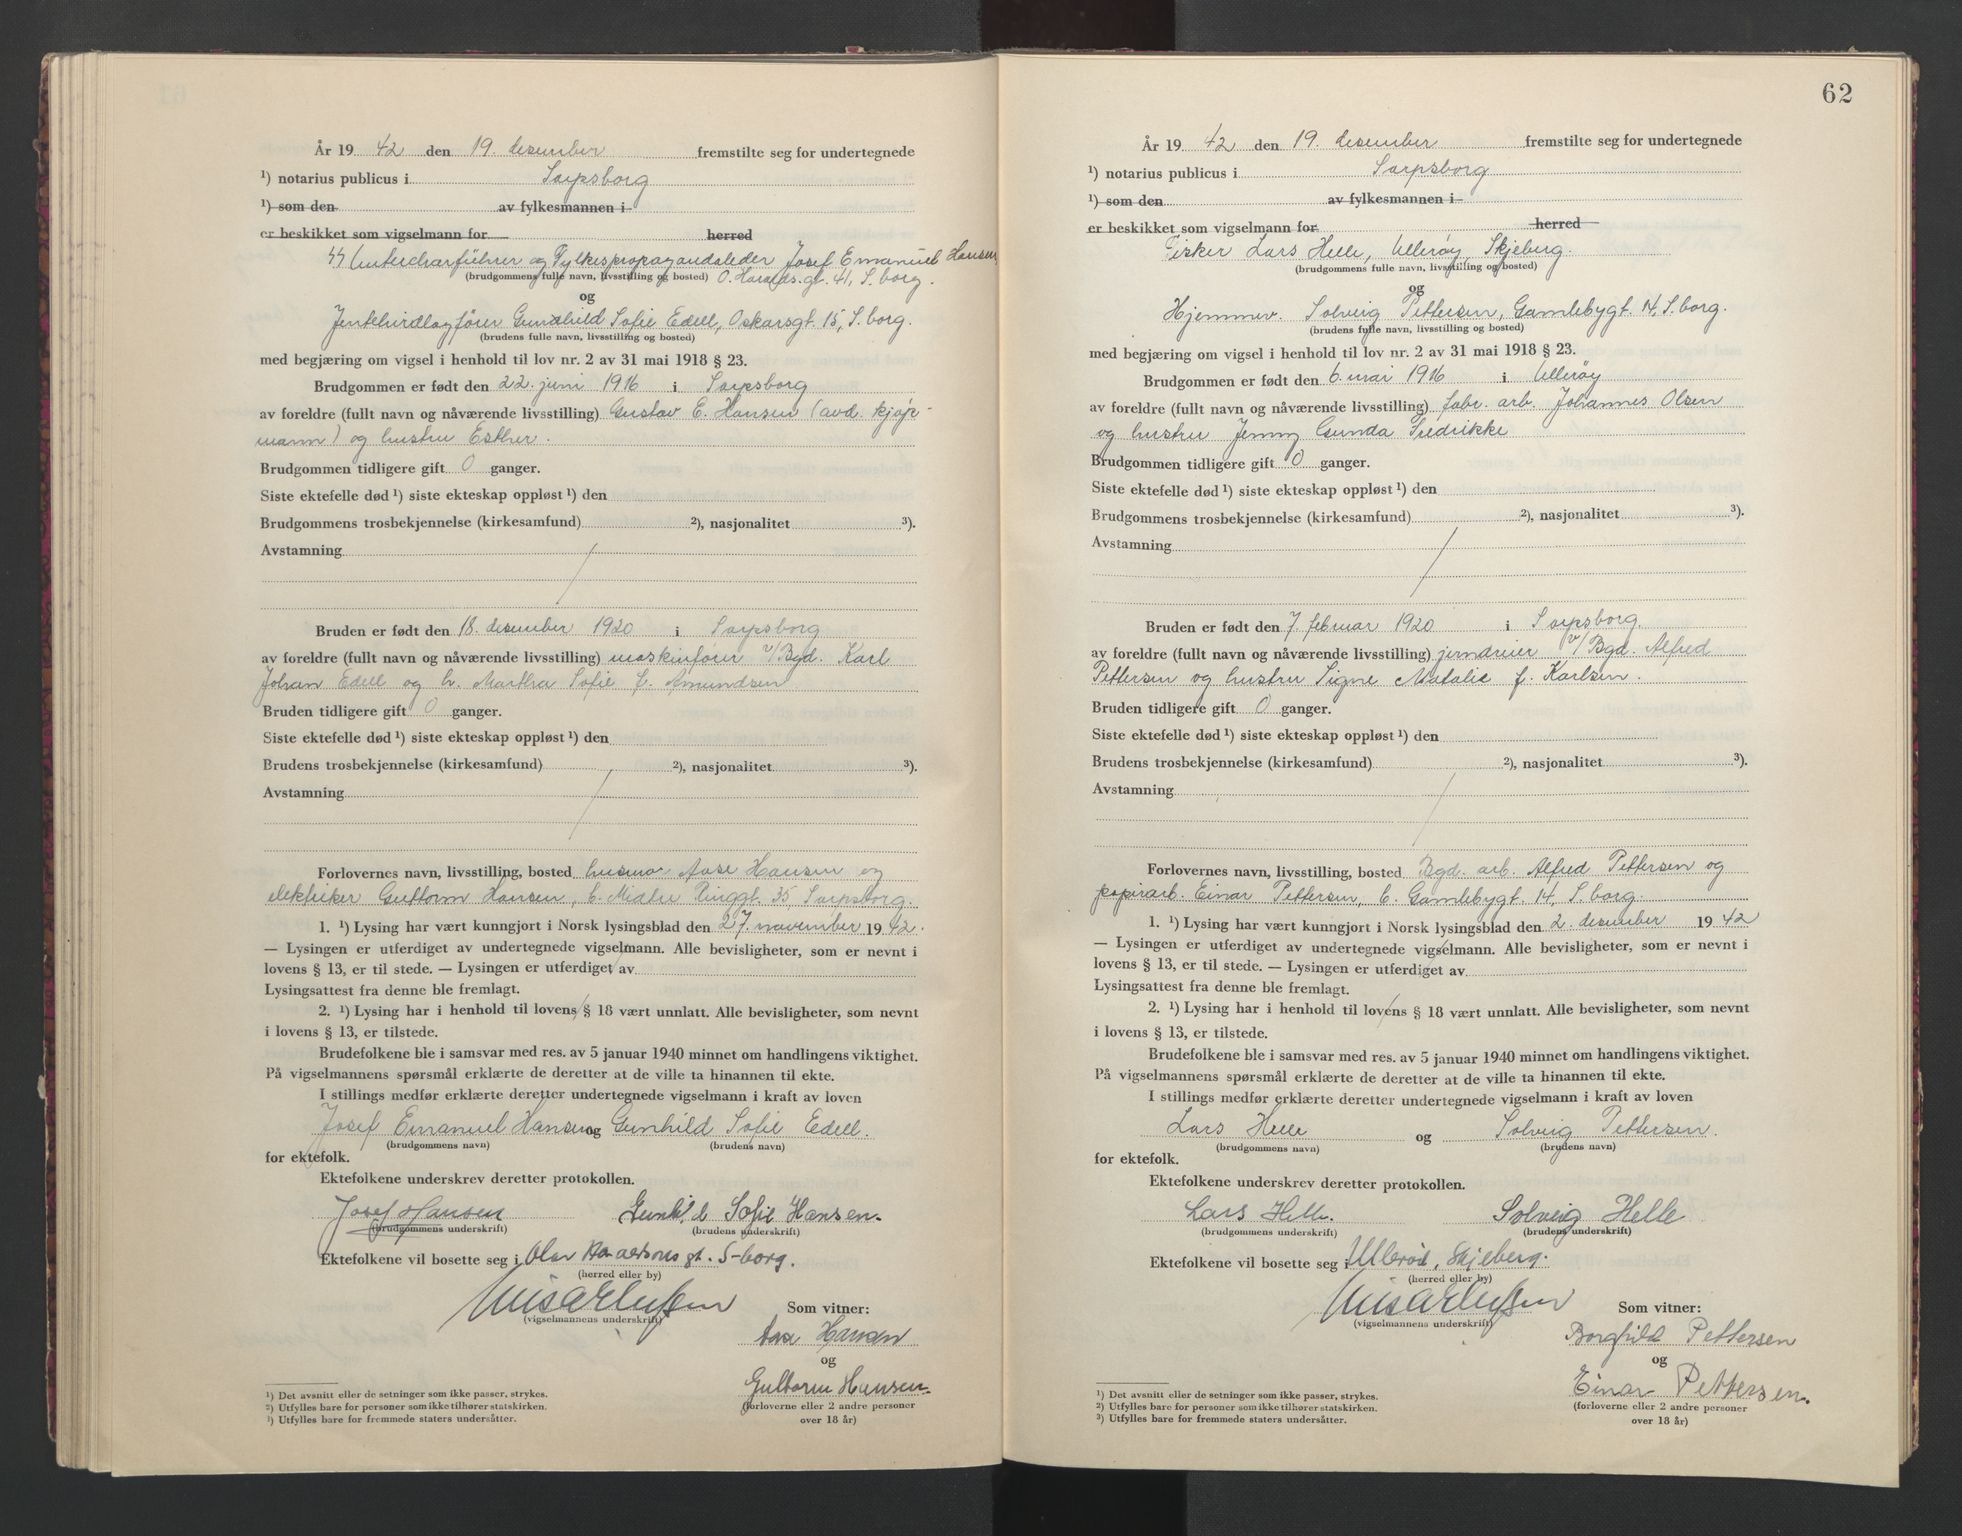 År 19 42 den 19. desember fremstilte seg for undertegnede
¹) notarius publicus i Sarpsborg
¹) som den av fylkesmannen i
er beskikket som vigselmann for herred
SS Unterscharführer og Fylkespropagandaleder Josef Emanuel Hansen
(brudgommens fulle navn, livsstilling og bosted) O. Haralds.gt. 41, S.borg.
og
Jentehirdlagfører Gundhild Sofie Edell, Oskarsgt. 15, S.borg.
(brudens fulle navn, livsstilling og bosted)
med begjæring om vigsel i henhold til lov nr. 2 av 31 mai 1918 § 23.
Brudgommen er født den 22. juni 1916 i Sarpsborg
av foreldre (fullt navn og nåværende livsstilling) Gustav E. Hansen (avd. kjøp-
mann) og hustru Esther.
Brudgommen tidligere gift 0 ganger.
Siste ektefelle død ¹) siste ekteskap oppløst ¹) den
Brudgommens trosbekjennelse (kirkesamfund) ²), nasjonalitet ³).
Avstamning
Bruden er født den 18. desember 1920 i Sarpsborg
av foreldre (fullt navn og nåværende livsstilling) maskinfører v/Bgd. Karl
Johan Edell og h. Martha Sofie f. Amundsen
Bruden tidligere gift 0 ganger.
Siste ektefelle død ¹) siste ekteskap oppløst ¹) den
Brudens trosbekjennelse (kirkesamfund) ²), nasjonalitet ³).
Avstamning
Forlovernes navn, livsstilling, bosted husmor Aase Hansen og
elektriker Guttorm Hansen, b. Ringgt. 35 Sarpsborg.
1. ¹) Lysing har vært kunngjort i Norsk lysingsblad den 27. november 19 42.
— Lysingen er utferdiget av undertegnede vigselmann. Alle bevisligheter, som er nevnt i
lovens § 13, er til stede. — Lysingen er utferdiget av
Lysingsattest fra denne ble fremlagt.
2. ¹) Lysing har i henhold til lovens § 18 vært unnlatt. Alle bevisligheter, som nevnt
i lovens § 13, er tilstede.
Brudefolkene ble i samsvar med res. av 5 januar 1940 minnet om handlingens viktighet.
På vigselmannens spørsmål erklærte de deretter at de ville ta hinannen til ekte.
I stillings medfør erklærte deretter undertegnede vigselmann i kraft av loven
Josef Emanuel Hansen og Gunhild Sofie Edell.
(brudgommens navn) (brudens navn)
for ektefolk.
Ektefolkene underskrev deretter protokollen.
Josef Hansen Gunhild Sofie Hansen.
(brudgommens underskrift) (brudens underskrift)
Ektefolkene vil bosette seg i Olav gt. S-borg.
(herred eller by)
Som vitner:
(vigselmannens underskrift)
Aase Hansen
og
Guttorm Hansen.
(forloverne eller 2 andre personer
over 18 år)
¹) Det avsnitt eller de setninger som ikke passer, strykes.
²) Utfylles bare for personer som ikke tilhører statskirken.
³) Utfylles bare for fremmede staters undersåtter.
62
År 19 42 den 19. desember fremstilte seg for undertegnede
¹) notarius publicus i Sarpsborg
¹) som den av fylkesmannen i
er beskikket som vigselmann for herred
Fisker Lars Helle, Ullerøy, Skjeberg.
(brudgommens fulle navn, livsstilling og bosted)
og
Hjemmev. Solveig Pettersen, Gamlebygt. 14, S.borg.
(brudens fulle navn, livsstilling og bosted)
med begjæring om vigsel i henhold til lov nr. 2 av 31 mai 1918 § 23.
Brudgommen er født den 6. mai 1916 i Ullerøy
av foreldre (fullt navn og nåværende livsstilling) fabr. arb. Johannes Olsen
og hustru Jenny Gunda Fredrikke
Brudgommen tidligere gift 0 ganger.
Siste ektefelle død ¹) siste ekteskap oppløst ¹) den
Brudgommens trosbekjennelse (kirkesamfund) ²), nasjonalitet ³).
Avstamning
Bruden er født den 7. februar 1920 i Sarpsborg.
av foreldre (fullt navn og nåværende livsstilling) jerndreier v/Bgd. Alfred
Pettersen og hustru Signe Natalie f. Karlsen.
Bruden tidligere gift 0 ganger.
Siste ektefelle død ¹) siste ekteskap oppløst ¹) den
Brudens trosbekjennelse (kirkesamfund) ²), nasjonalitet ³).
Avstamning
Forlovernes navn, livsstilling, bosted Bgd. arb. Alfred Pettersen og
papirarb. Einar Pettersen, b. Gamlebygt. 14, S.borg.
1. ¹) Lysing har vært kunngjort i Norsk lysingsblad den 2. desember 19 42
— Lysingen er utferdiget av undertegnede vigselmann. Alle bevisligheter, som er nevnt i
lovens § 13, er til stede. — Lysingen er utferdiget av
Lysingsattest fra denne ble fremlagt.
2. ¹) Lysing har i henhold til lovens § 18 vært unnlatt. Alle bevisligheter, som nevnt
i lovens § 13, er tilstede.
Brudefolkene ble i samsvar med res. av 5 januar 1940 minnet om handlingens viktighet.
På vigselmannens spørsmål erklærte de deretter at de ville ta hinannen til ekte.
I stillings medfør erklærte deretter undertegnede vigselmann i kraft av loven
Lars Helle og Solveig Pettersen.
(brudgommens navn) (brudens navn)
for ektefolk.
Ektefolkene underskrev deretter protokollen.
Lars Helle. Solveig Helle
(brudgommens underskrift) (brudens underskrift)
Ektefolkene vil bosette seg i Ullerøi, Skjeberg.
(herred eller by)
Som vitner:
(vigselmannens underskrift)
Borghild Pettersen
og
Einar Pettersen.
(forloverne eller 2 andre personer
over 18 år)
¹) Det avsnitt eller de setninger som ikke passer, strykes.
²) Utfylles bare for personer som ikke tilhører statskirken.
³) Utfylles bare for fremmede staters undersåtter.